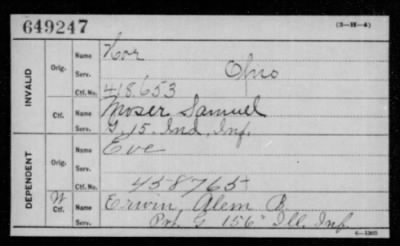 649247
(3-H-4)
INVALID
Orig.
Name
Serv.
Ctf. No. 418.653
Ctf.
Name Moser Samuel
Serv. G. 15. Ind. Inf.
DEPENDENT
Orig.
Name
Serv.
Ctf. No. 458765
W
Ctf.
Name Erwin, Alem B.
Serv. Pvt. G 156" Ill. Inf.